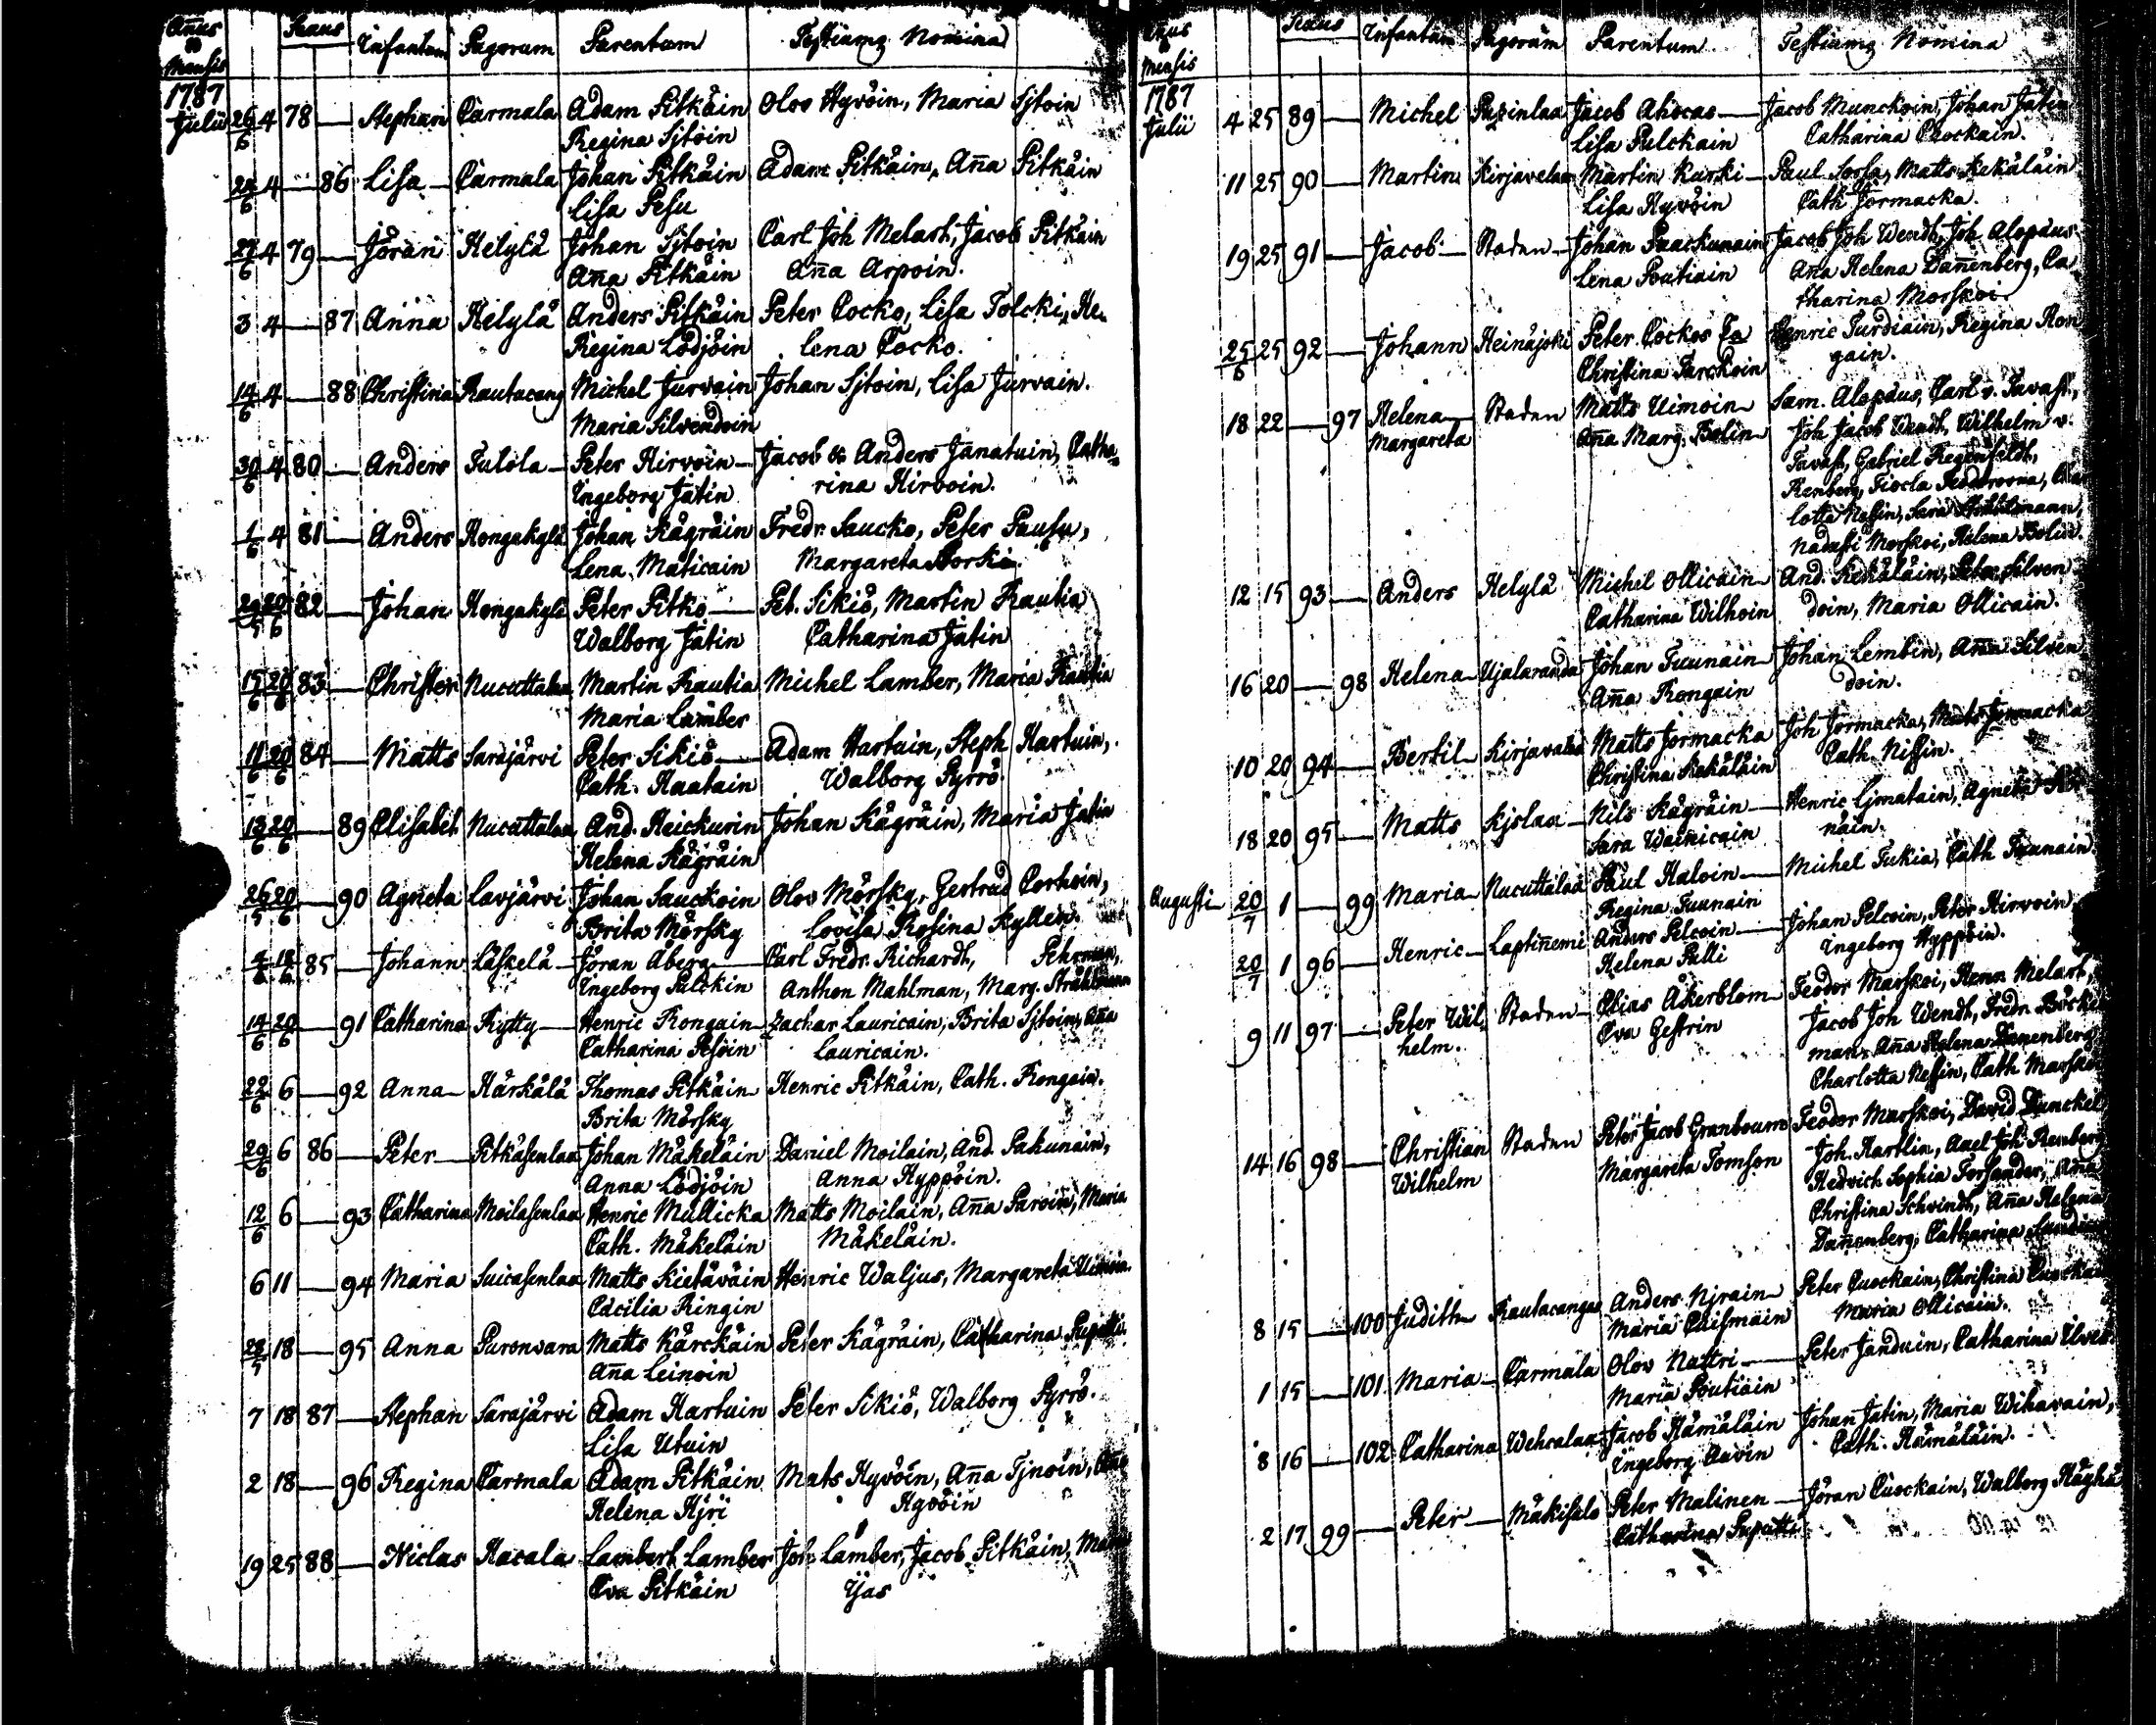 Añus & Mensis Sexus Infantum Pagorum Parentum Testiumq Nomina
1787
Julii 26/6 4 78 — Stephan Carmala Adam Pitkäin Olov Hyvöin, Maria Sjtoin
Regina Sjtoin
28/6 4 — 86 Lisa — Carmala Johan Pitkäin Adam Pitkäin, Aña Pitkäin
Lisa Pesu
27/6 4 79 — Jöran Helylä Johan Sjtoin Carl Joh Melart, Jacob Pitkäin
Aña Pitkäin Aña Arpoin.
3 4 — 87 Anna Helylä Anders Pitkäin Peter Cocko, Lisa Tolcki, He-
Regina Lodjöin lena Cocko.
14/6 4 — 88 Christina Rautacang Michel Jurvain Johan Sjtoin, Lisa Jurvain.
Maria Silvendoin
30/6 4 80 — Anders Tulola — Peter Hirvoin — Jacob & Anders Janatuin, Catha-
Ingeborg Jätin rina Hirvoin.
1/6 4 81 — Anders Hongakylä Johan Kägräin Fredr. Saucko, Peter Pausu,
Lena Maticain Margareta Borki
29/5 20/6 82 — Johan Hongakylä Peter Pitko — Pet. Sikiö, Martin Rautia
Walborg Jätin Catharina Jätin
15/6 20/6 83 — Christer Nucuttalaa Martin Rautia Michel Lamber, Maria Rautia
Maria Lamber
11/6 20/6 84 — Matts Sarajärvi Peter Sikiö — Adam Hartuin, Steph Hartuin,
Cath. Raatain Walborg Pyrrö
13/6 20/6 — 89 Elisabet Nucuttalaa And. Heickurin Johan Kägräin, Maria Jätin
Helena Kägräin
26/5 20/6 — 90 Agneta Lavjärvi Johan Sauckoin Olov Mörsky, Gertrud Corhoin,
Brita Mörsky Lovisa Rosina Kyllen.
85 — Johann Läskelä Jöran Åberg — Carl Fredr. Richardt, Pehrman,
Ingeborg Pulckin Anthon Mahlman, Marg. Stråhlmann
14/6 20/6 — 91 Catharina Rytty — Henric Rongain — Zachar Lauricain, Brita Sjtoin, Aña
Catharina Pesoin Lauricain.
22/6 6 — 92 Anna — Härkälä Thomas Pitkäin Henric Pitkäin, Cath. Rongain.
Brita Mörsky
29/6 6 86 — Peter — Pitkäsenlaa Johan Mäkeläin Daniel Moilain, And. Pakunain,
Anna Lodjöin Anna Hyppöin.
12/6 6 — 93 Catharina Moilasenlaa Henric Mullicka Matts Moilain, Aña Parvoin, Maria
Cath. Mäkeläin Mäkeläin.
6 11 — 94 Maria Suicasenlaa Matts Kietäväin Henric Waljus, Margareta Uimoin.
Cäcilia Ringin
28/5 18 — 95 Anna Puronvara Matts Kärckäin Peter Kägräin, Catharina Puputti.
Aña Leinoin
7 18 87 — Stephan Sarajärvi Adam Hartuin Peter Sikiö, Walborg Pyrrö.
Lisa Utuin
2 18 — 96 Regina Carmala Adam Pitkäin Mats Hyvöin, Aña Tjnoin,
Helena Hjri Hyvöin
19 25 88 — Niclas Hacala Lambert Lamber Joh. Lamber, Jacob Pitkäin,
Eva Pitkäin Ijas
Añus & Mensis Sexus Infantum Pagorum Parentum Testiumq Nomina
1787
Julii 4 25 89 — Michel Puzinlaa Jacob Ahocas — Jacob Munckoin, Johan Jätin
Lisa Pulckain Catharina Cuockain.
11 25 90 — Martin Kirjavalaa Martin Kurki — Paul Sorsa, Matts Kekäläin
Lisa Hyvöin Cath Jormacka.
19 25 91 — Jacob — Staden — Johan Paackunain Jacob Joh Wendt, Joh Alopäus
Lena Poutiain Aña Helena Dañenberg, Ca-
tharina Morskoi.
25/6 25 92 — Johann Heinäjoki Peter Cockos Henric Turdiain, Regina Ron
Christina Tarckoin gain.
18 22 — 97 Helena — Staden Matts Uimoin Sam. Alopäus, Carl v. Tavast,
Margareta Aña Marg. Bolin Joh Jacob Wendt, Wilhelm v.
Tavast, Gabriel Regenfeldt,
Renberg, Tiocla Feodorovna, Char
lotta Nessin, Sara Stråhlmann,
Nadasti Morskoi, Helena Bolin.
12 15 93 — Anders Helylä Michel Ollicain And. Kekäläin, Peter Silven
Catharina Wilhoin doin, Maria Ollicain.
16 20 — 98 Helena — Ujalaranda Johan Tuunain — Johan Lembin, Aña Silven
Aña Rongain doin.
10 20 94 — Bertil — Kirjavalaa Matts Jormacka Joh Jormacka, Mats Jormacka
Christina Kekäläin Cath. Nissin.
18 20 95 — Matts Kjslaa — Nils Kägräin — Henric Ijmatain, Agneta
Sara Wäinicain näin.
Augusti 20/7 1 — 99 Maria — Nucuttalaa Paul Haloin — Michel Tukia, Cath Tuunain.
Regina Tuunain
20/7 1 96 — Henric — Laptiñemi Anders Pelcoin — Johan Pelcoin, Peter Hirvoin,
Helena Pulli Ingeborg Hyppöin.
9 11 97 — Peter Wil- Staden — Elias Åkerblom — Feodor Morskoi, Herm Melart,
helm. Eva Gestrin Jacob Joh Wendt, Fredr. Böcke
man, Aña Helena Dañenberg
Charlotta Nessin, Cath Morskoi
14 16 98 — Christian Staden Peter Jacob Granboum Feodor Morskoi, David Dunckel
Wilhelm Margareta Tomson Joh. Hartlin, Axel Joh Renberg
Hedvich Sophia Forsander, Aña
Christina Schvindt, Aña Helena
Dañenberg, Catharina
8 15 — 100 Judith — Rautacangas Anders Njrain Peter Cuockain, Christina Cuockain
Maria Caismain Maria Ollicain.
1 15 — 101 Maria — Carmala Olov Nuttri — Peter Janduin, Catharina
Maria Poutiain
8 16 — 102 Catharina Wehcalaa Jacob Hämäläin Johan Jätin, Maria Wihavain,
Ingeborg Auvin Cath. Hämäläin.
2 17 99 — Peter — Mäkisalo Peter Malinen — Jöran Cuockain, Walborg
Catharina Puputti